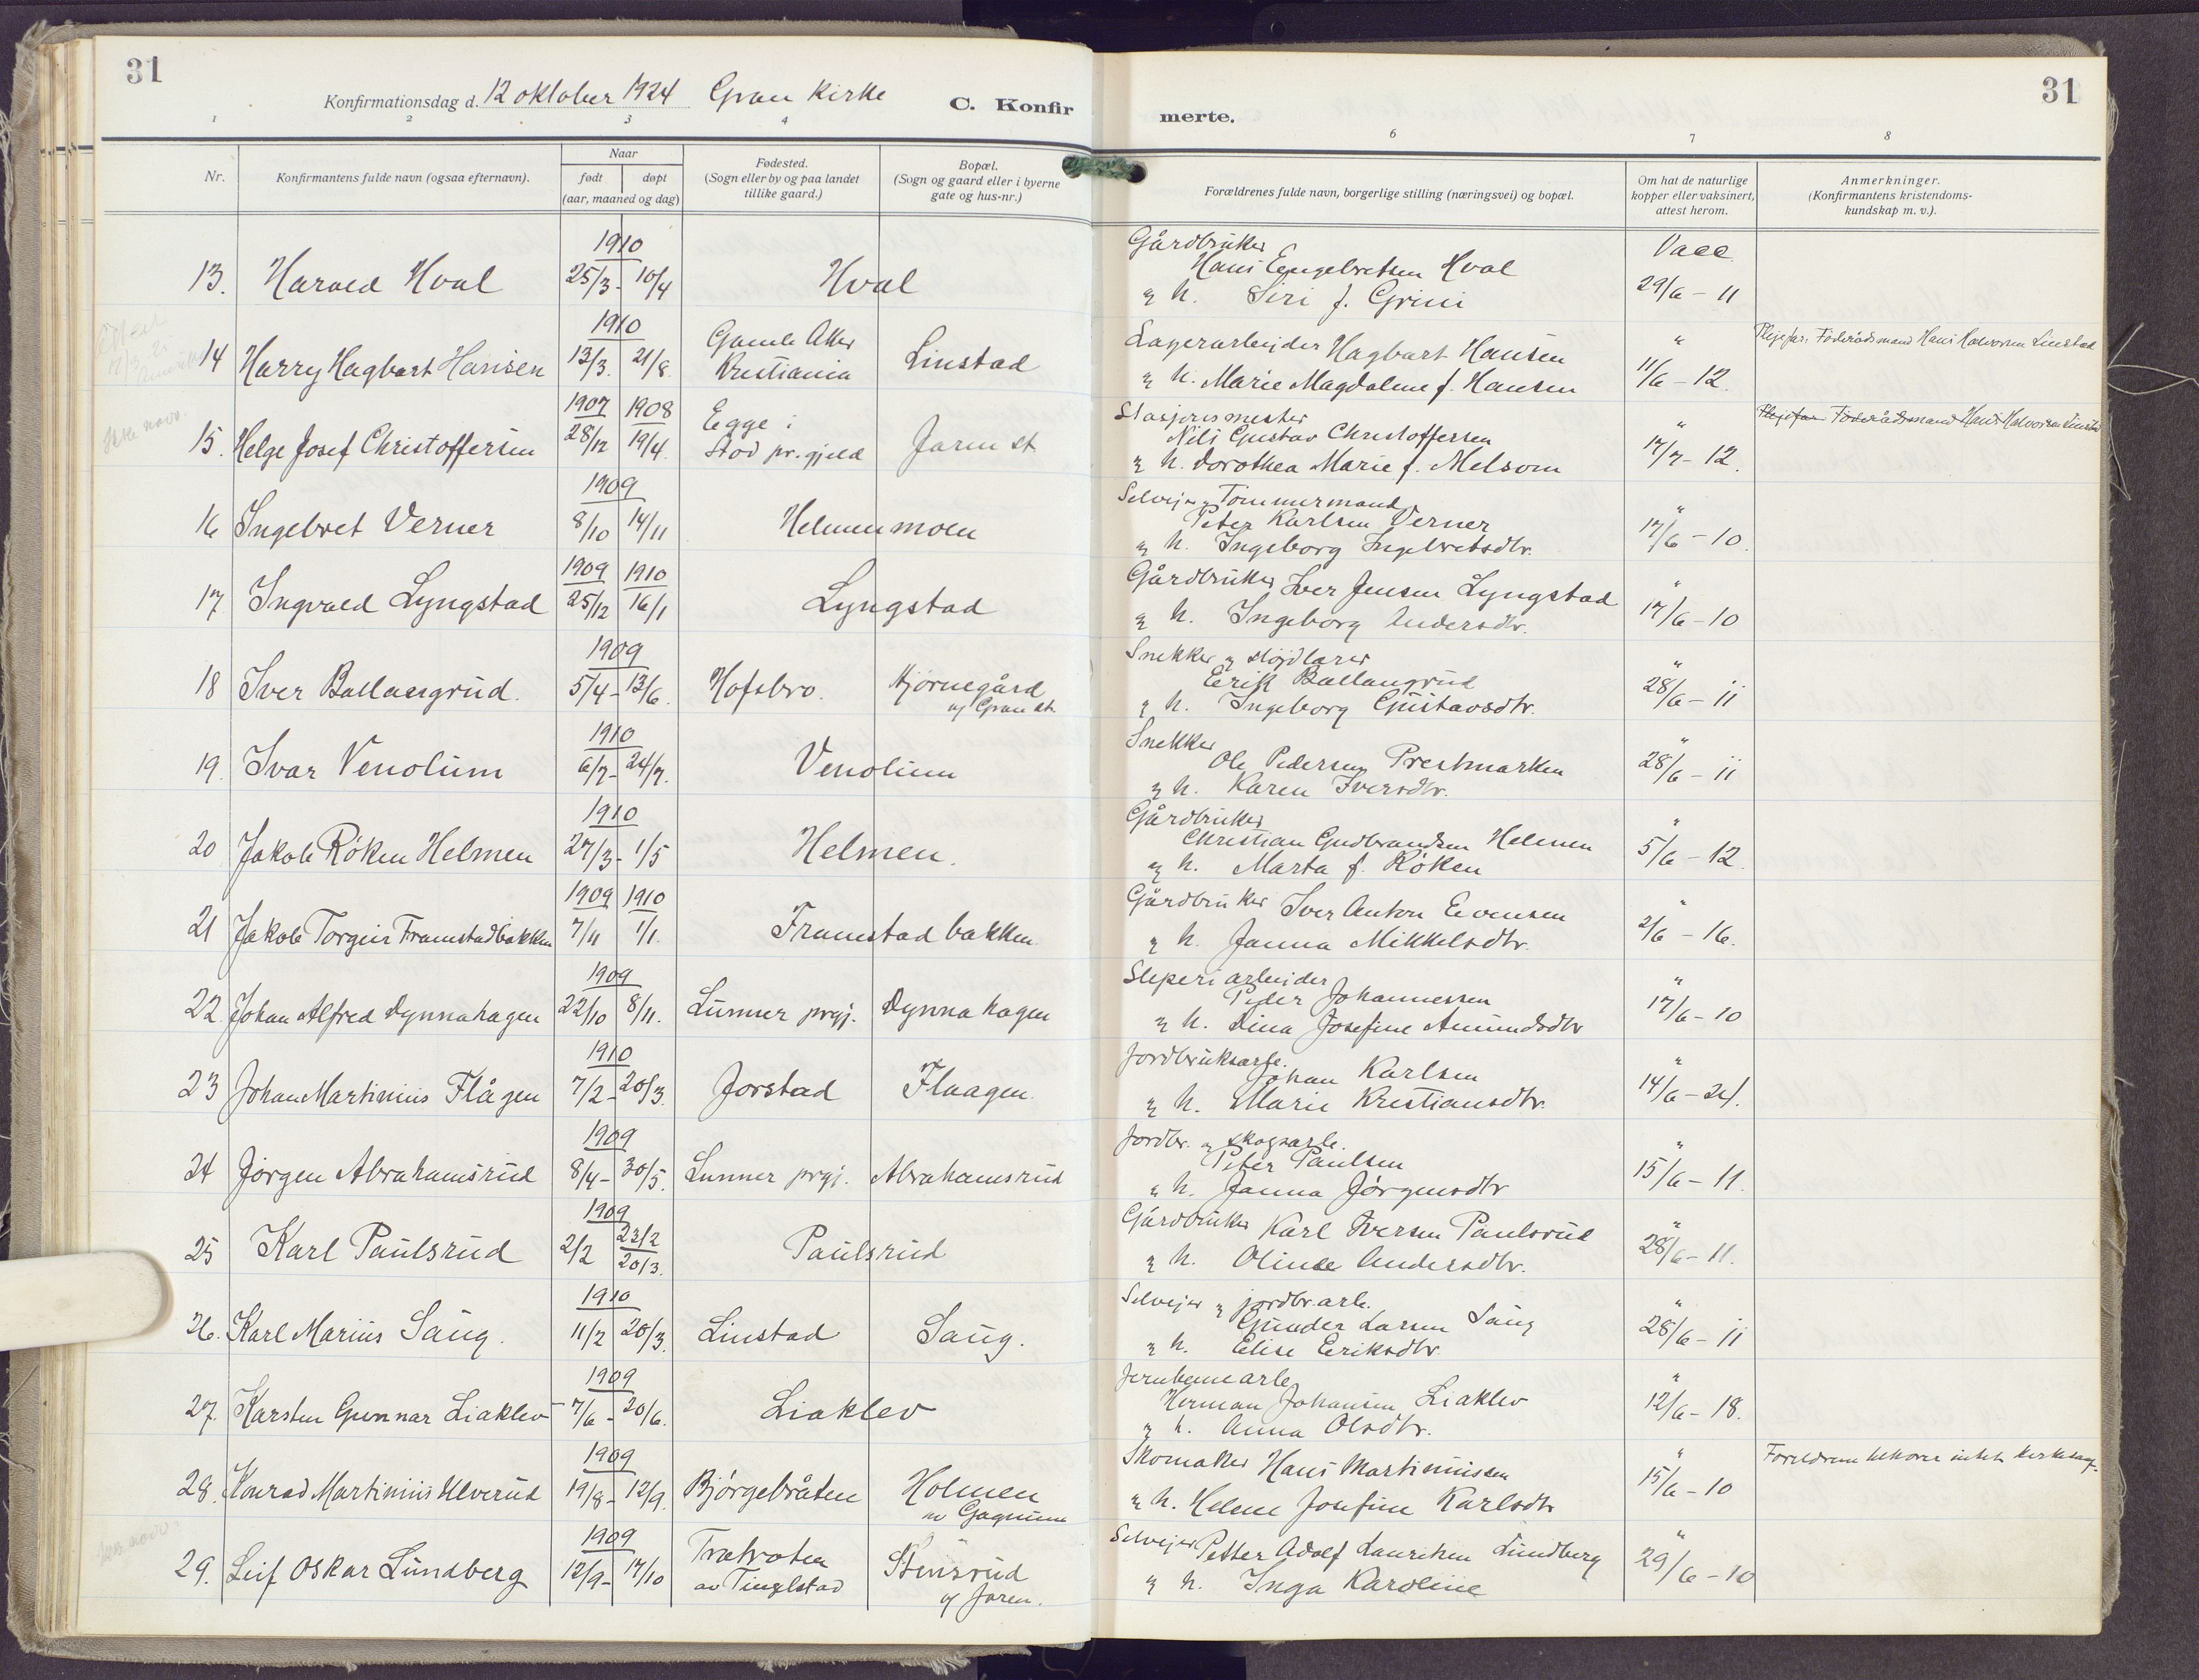 31
Konfirmationsdag d. 12 oktober 1924 Gran Kirke
C. Konfir
1 2 3 4
Nr.
Konfirmantens fulde navn (ogsaa efternavn).
Naar
født døpt
(aar, maaned og dag)
Fødested.
(Sogn eller by og paa landet
tillike gaard.)
Bopæl.
(Sogn og gaard eller i byerne
gate og hus-nr.)
1910
13. Harald Hval 25/3 - 10/4 Hval
1910
14 Harry Hagbart Hansen 13/3. 21/8. Gamle Aker
Kristiania Linstad
1907 1908
15. Helge Josef Christoffersen 28/12 19/4 Egge i
Stod pr.gjeld Jaren st.
1909
16 Ingebret Verner 8/10 14/11 Helmenmoen
1909 1910
17 Ingvald Lyngstad 25/12 16/1 Lyngstad
1909
18 Iver Ballangrud. 5/4 - 13/6. Hofsbro. Hjørnegård
v/ Gran st.
1910
19. Ivar Venolum 6/7 - 24/7. Venolum
1910
20 Jakob Røken Helmen 27/3 - 1/5 Helmen.
1909 1910
21 Jakob Torgeir Framstadbakken 7/11 1/1. Framstadbakken
1909
22. Johan Alfred Dynnahagen 22/10 8/11. Lunner prgj. Dynnahagen
1910
23 Johan Martinius Flågen 7/2 - 20/3. Jorstad Flaagen.
1909
24 Jørgen Abrahamsrud 8/4 - 30/5. Lunner prgj. Abrahamsrud
1909
25 Karl Paulsrud 2/2 23/2
20/3. Paulsrud
1910
26. Karl Marius Saug. 11/2 20/3. Linstad Saug.
1909
27. Karsten Gunnar Liaklev 7/6 - 20/6. Liaklev
1909
28. Konrad Martinius Ulverud 19/8 - 12/9. Bjørgebråten Holmen
av Gagnum
1909
29. Leif Oskar Lundberg 12/9 - 17/10 Trætroten
av Tingelstad Stensrud
v/ Jaren.
31
merte.
6 7 8
Forældrenes fulde navn, borgerlige stilling (næringsvei) og bopæl.
Om hat de naturlige
kopper eller vaksinert,
attest herom.
Anmerkninger.
(Konfirmantens kristendoms-
kundskap m. v.).
Gårdbruker
Hans Engebretsen Hval
og h. Siri f. Grini
Vacc.
29/6 - 11
Lagerarbeider Hagbart Hansen
og h. Marie Magdalene f. Hansen
" 11/6 - 12.
Plejefar: Føderådsmand Hans Halvorsen Linstad
Stasjonsmester
Nils Gustav Christoffersen
og h. Dorothea Marie f. Melsom
" 17/7 - 12.
Plejefar Føderådsmand Hans Halvorsen Linstad
Selvejer og Tømmermand
Peter Karlsen Verner
og h. Ingeborg Ingebretsdtr.
" 17/6 - 10.
Gårdbruker Iver Jensen Lyngstad
og h. Ingeborg Andersdtr.
" 17/6 - 10
Snekker og sløjdlærer
Erik Ballangrud
og h. Ingeborg Gustavsdtr.
" 28/6 - 11
Snekker
Ole Pedersen Prestmarken
og h. Karen Iversdtr.
" 28/6 - 11
Gårdbruker
Christian Gudbrandsen Helmen
og h. Marta f. Røken
" 5/6 - 12.
Gårdbruker Iver Anton Evensen
og h. Janna Mikkelsdtr.
" 2/6 - 16.
Sliperiarbeider
Peder Johannessen
og h. Lina Josefine Amundsdtr
" 17/6 - 10
Jordbruksarb.
Johan Karlsen
og h. Marie Kristiansdtr.
" 14/6 - 24.
Jordbr. og skogsarb.
Peter Paulsen
og h. Janna Jørgensdtr
" 15/6 - 11.
Gårdbruker Karl Iversen Paulsrud
og h. Oline Andersdtr.
" 28/6 - 11.
Selvejer og jordbr.arb.
Gunder Larsen Saug
og h. Elise Eriksdtr.
" 28/6 - 11
Jernbanearb.
Herman Johansen Liaklev
og h. Anna Olsdtr.
" 12/6 - 18.
Skomaker Hans Martinussen
og h. Helene Josefine Karlsdtr
" 15/6 - 10
Selvejer Petter Adolf Lauritsen Lundberg
og h. Inga Karoline
" 29/6 - 10